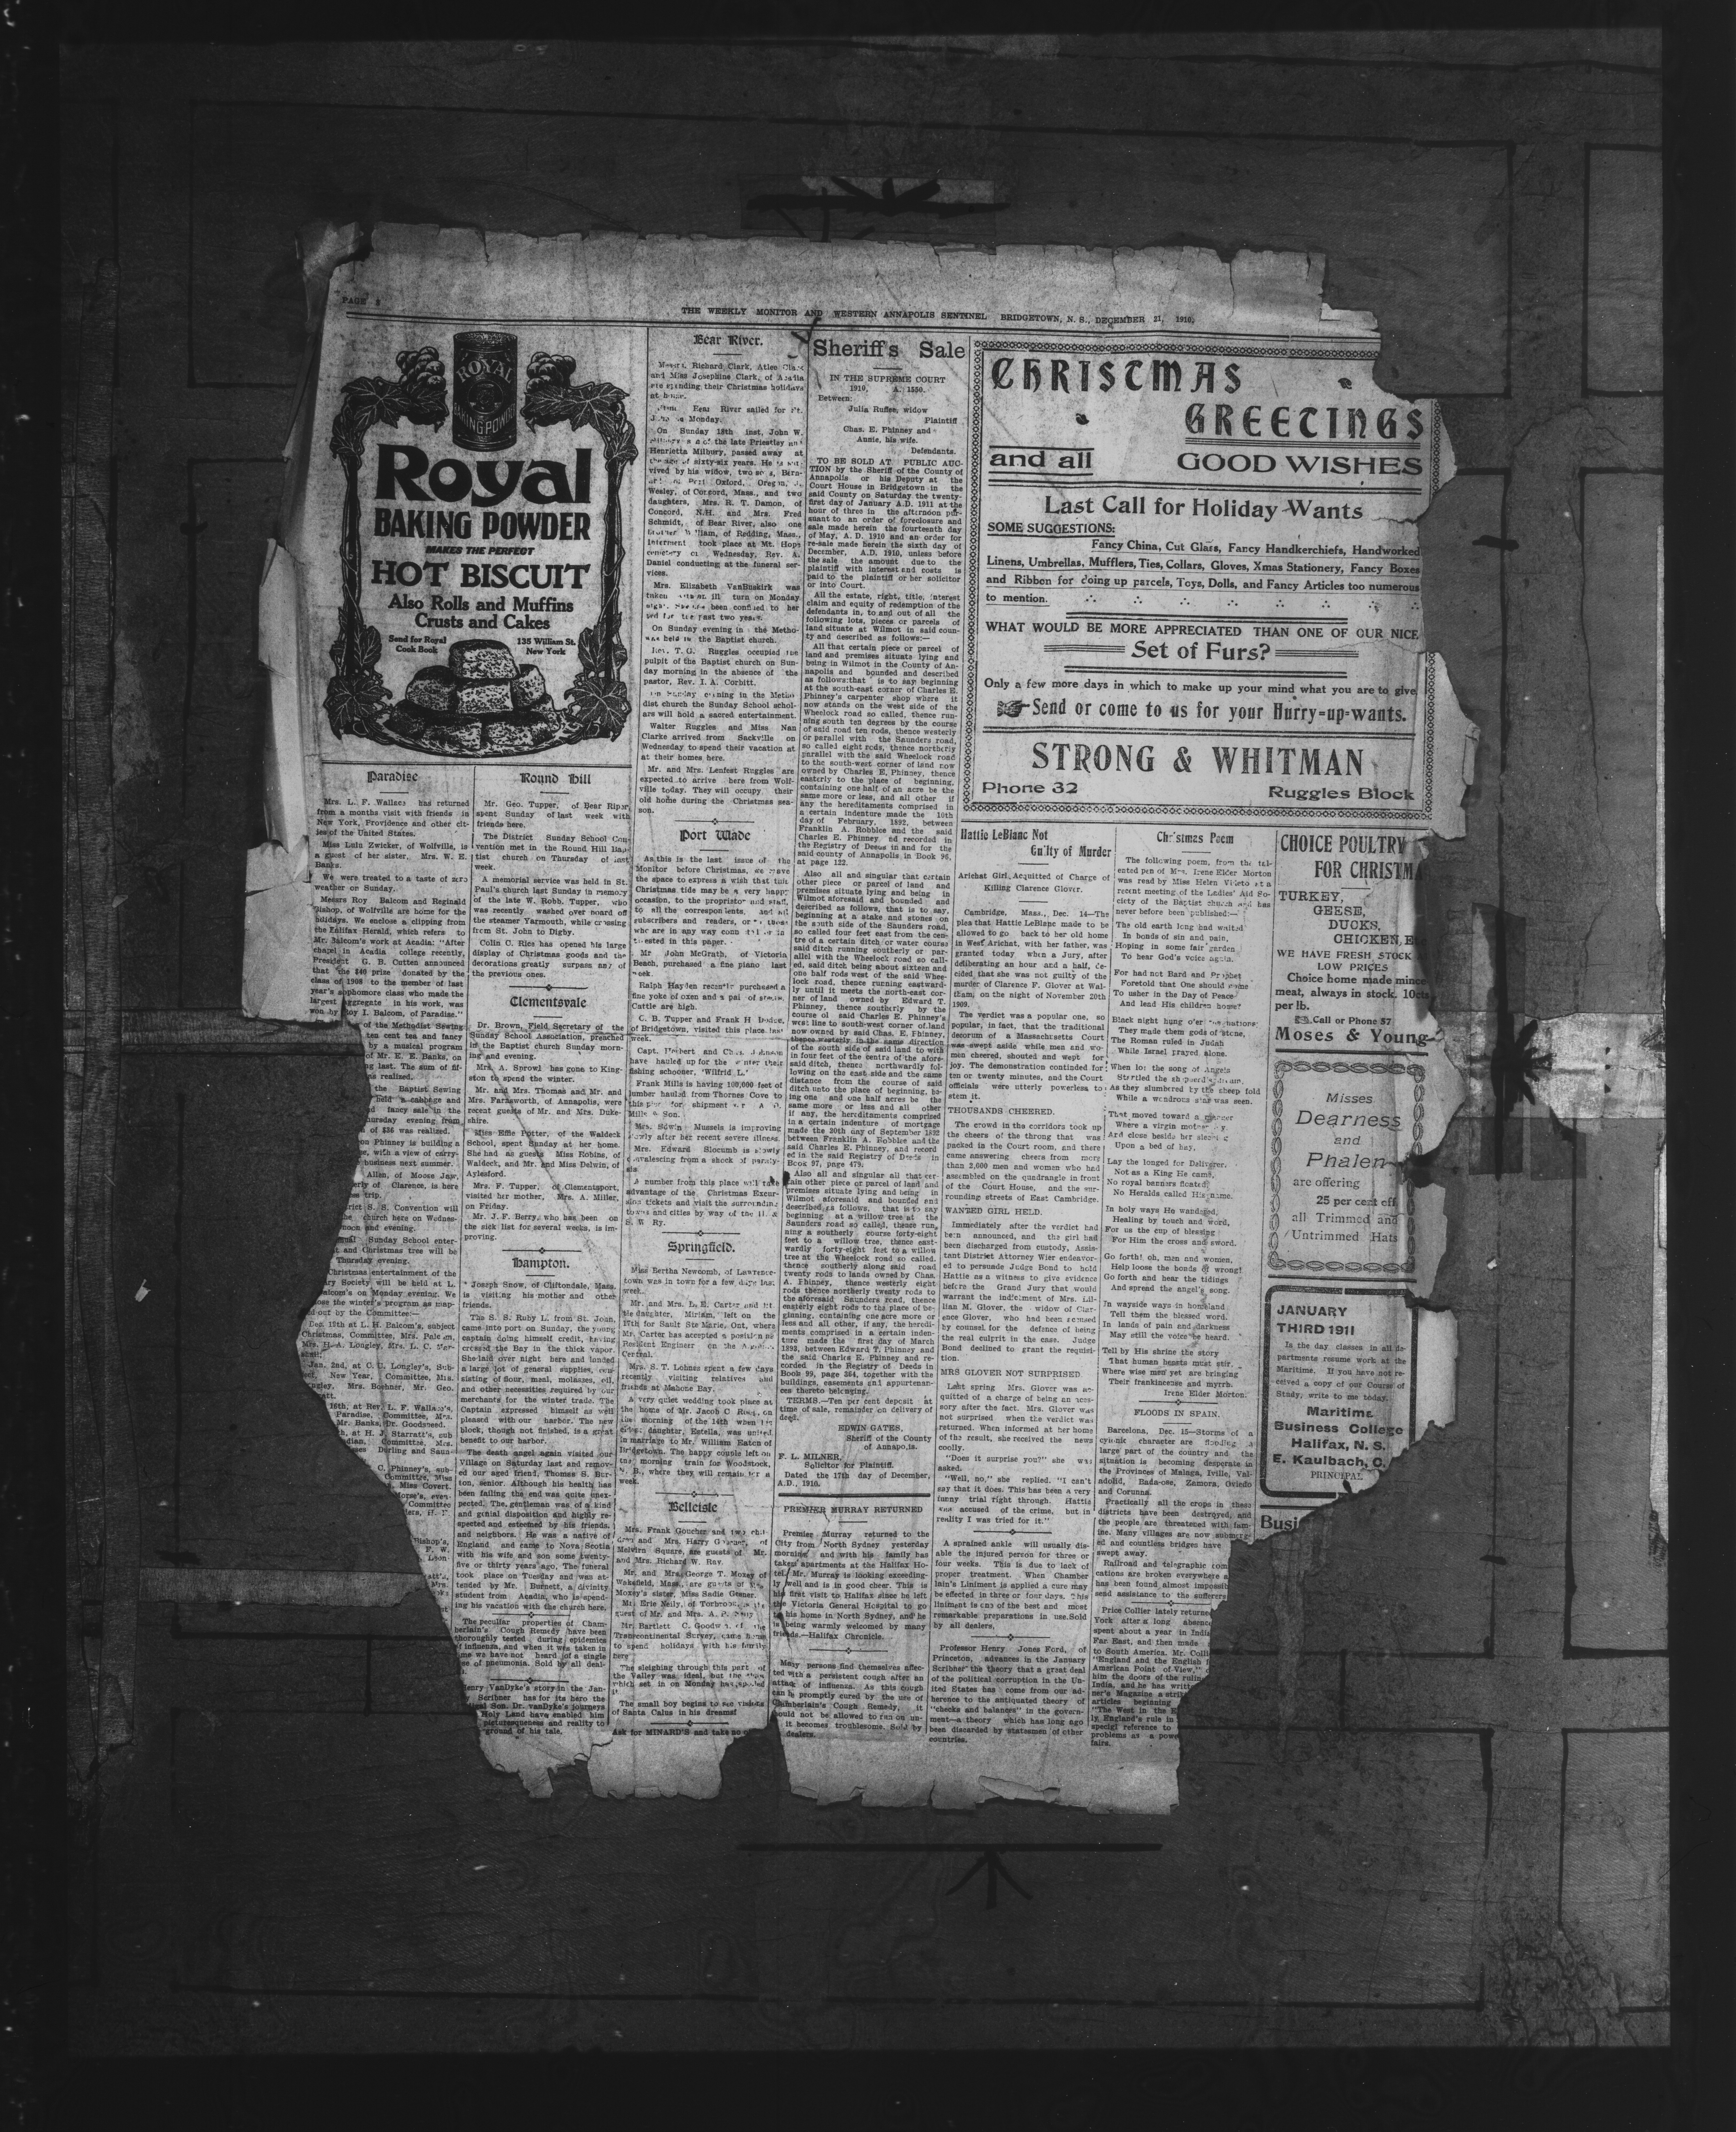 PAGE 8
THE WEEKLY MONITOR AND WESTERN ANNAPOLIS SENTINEL BRIDGETOWN, N. S., DECEMBER 21, 1910.
ROYAL
BAKING POWDER
Royal
BAKING POWDER
MAKES THE PERFECT
HOT BISCUIT
Also Rolls and Muffins
Crusts and Cakes
Send for Royal
Cook Book
135 William St.
New York
Paradise
Mrs. L. F. Wallace has returned
from a months visit with friends in
New York, Providence and other cit-
ies of the United States.
Miss Lulu Zwicker, of Wolfville, is
a guest of her sister, Mrs. W. E.
Banks.
We were treated to a taste of zero
weather on Sunday.
Messrs Roy Balcom and Reginald
Bishop, of Wolfville are home for the
holidays. We enclose a clipping from
the Halifax Herald, which refers to
Mr. Balcom's work at Acadia: "After
chapel in Acadia college recently,
President G. B. Cutten announced
that the $40 prize donated by the
class of 1908 to the member of last
year's sophomore class who made the
largest aggregate in his work, was
won by Roy I. Balcom, of Paradise."
of the Methodist Sewing
ten cent tea and fancy
by a musical program
of Mr. E. E. Banks, on
last. The sum of fif-
realized.
the Baptist Sewing
held a cabbage and
fancy sale in the
Thursday evening from
of $36 was realized.
Phinney is building a
with a view of carry-
business next summer.
Allen, of Moose Jaw,
of Clarence, is here
trip.
S. S. Convention will
church here on Wednes-
noon and evening.
Sunday School enter-
and Christmas tree will be
Thursday evening.
Christmas entertainment of the
Society will be held at L.
Balcom's on Monday evening. We
the winter's program as map-
out by the Committee:—
Dec. 19th at L. H. Balcom's, subject
Christmas, Committee, Mrs. Balcom,
Mrs. H. A. Longley, Mrs. L. C. Mar-
shall.
Jan. 2nd, at C. U. Longley's, Sub-
New Year, Committee, Mrs.
Longley, Mrs. Boehner, Mr. Geo.
16th, at Rev. L. F. Wallace's,
Paradise, Committee, Mrs.
Mr. Banks, Dr. Goodspeed.
at H. J. Starratt's, sub
Committee, Mrs.
Durling and Saun-
C. Phinney's, sub-
Committee, Miss
Miss Covert.
Morse's, even-
Committee
Bishop's,
F. W.
Round Hill
Mr. Geo. Tupper, of Bear River,
spent Sunday of last week with
friends here.
The District Sunday School Con-
vention met in the Round Hill Bap-
tist church on Thursday of last
week.
A memorial service was held in St.
Paul's church last Sunday in memory
of the late W. Robb. Tupper, who
was recently washed over board off
the steamer Yarmouth, while crossing
from St. John to Digby.
Colin C. Rice has opened his large
display of Christmas goods and the
decorations greatly surpass any of
the previous ones.
Clementsvale
Dr. Brown, Field Secretary of the
Sunday School Association, preached
in the Baptist Church Sunday morn-
ing and evening.
Mrs. A. Sprowl has gone to King-
ston to spend the winter.
Mr. and Mrs. Thomas and Mr. and
Mrs. Farnsworth, of Annapolis, were
recent guests of Mr. and Mrs. Duke-
shire.
Miss Effie Potter, of the Waldeck
School, spent Sunday at her home.
She had as guests Miss Robins, of
Waldeck, and Mr. and Miss Delwin, of
Aylesford.
Mrs. F. Tupper, of Clementsport,
visited her mother, Mrs. A. Miller,
on Friday.
Mr. J. F. Berry, who has been on
the sick list for several weeks, is im-
proving.
Hampton.
Joseph Snow, of Cliftondale, Mass.
is visiting his mother and other
friends.
The S. S. Ruby L. from St. John,
came into port on Sunday, the young
captain doing himself credit, having
crossed the Bay in the thick vapor.
She laid over night here and landed
a large lot of general supplies, con-
sisting of flour, meal, molasses, oil,
and other necessities required by our
merchants for the winter trade. The
Captain expressed himself as well
pleased with our harbor. The new
block, though not finished, is a great
benefit to our harbor.
The death angel again visited our
Village on Saturday last and remov-
ed our aged friend, Thomas S. Bur-
ton, senior. Although his health has
been failing the end was quite unex-
pected. The gentleman was of a kind
and genial disposition and highly re-
spected and esteemed by his friends,
and neighbors. He was a native of
England and came to Nova Scotia
with his wife and son some twenty-
five or thirty years ago. The funeral
took place on Tuesday and was at-
tended by Mr. Burnett, a divinity
student from Acadia, who is spend-
ing his vacation with the church here.
The peculiar properties of Cham-
berlain's Cough Remedy have been
thoroughly tested during epidemics
of influenza, and when it was taken in
time we have not heard of a single
case of pneumonia. Sold by all deal-
Henry VanDyke's story in the Jan-
Scribner has for its hero the
Son. Dr. vanDyke's journeys
Holy Land have enabled him
picturesqueness and reality to
ground of his tale.
Bear River.
Messrs. Richard Clark, Atlee Clark
and Miss Josephine Clark, of Acadia
are spending their Christmas holidays
at home.
Bear River sailed for St.
John on Monday.
On Sunday 18th inst. John W.
Milbury son of the late Priestley and
Henrietta Milbury, passed away at
the age of sixty-six years. He is sur-
vived by his widow, two sons, Bern-
ard of Port Oxford, Oregon,
Wesley, of Concord, Mass., and two
daughters, Mrs. R. T. Damon, of
Concord, N.H. and Mrs. Fred
Schmidt, of Bear River, also one
brother William, of Redding, Mass.,
Interment took place at Mt. Hope
cemetery on Wednesday, Rev. A.
Daniel conducting at the funeral ser-
vices.
Mrs. Elizabeth VanBuskirk was
taken ill turn on Monday
night. She has been confined to her
bed for the past two years.
On Sunday evening in the Metho-
was held in the Baptist church.
Rev. T. G. Ruggles occupied the
pulpit of the Baptist church on Sun-
day morning in the absence of the
pastor, Rev. I. A. Corbitt.
On Sunday evening in the Metho-
dist church the Sunday School schol-
ars will hold a sacred entertainment.
Walter Ruggles and Miss Nan
Clarke arrived from Sackville on
Wednesday to spend their vacation at
at their homes here.
Mr. and Mrs. Lenfest Ruggles are
expected to arrive here from Wolf-
ville today. They will occupy their
old home during the Christmas sea-
son.
Port Wade
As this is the last issue of the
Monitor before Christmas, we crave
the space to express a wish that this
Christmas tide may be a very happy
occasion, to the proprietor and staff,
to all the correspondents, and all
subscribers and readers, or to those
who are in any way connected or in-
terested in this paper.
Mr John McGrath, of Victoria
Beach, purchased a fine piano last
week.
Ralph Hayden recently purchased a
fine yoke of oxen and a pair of steers.
Cattle are high.
C. B. Tupper and Frank H Dodge,
of Bridgetown, visited this place last
week.
Capt. Herbert and Chas. Johnson
have hauled up for the winter their
fishing schooner, 'Wilfrid L.'
Frank Mills is having 100,000 feet of
lumber hauled from Thornes Cove to
this pier for shipment
Mills & Son.
Mrs. Edwin Mussels is improving
slowly after her recent severe illness.
Mrs. Edward Slocumb is slowly
convalescing from a shock of paraly-
sis.
A number from this place will take
advantage of the Christmas Excur-
sion tickets and visit the surrounding
towns and cities by way of the H. &
S. W Ry.
Springfield.
Miss Bertha Newcomb, of Lawrence-
town was in town for a few days last
week.
Mr. and Mrs. L. E. Carter and lit-
tle daughter, Miriam, left on the
17th for Sault Ste Marie, Ont, where
Mr. Carter has accepted a position as
Resident Engineer on the Algoma
Central.
Mrs. S. T. Lohnes spent a few days
recently visiting relatives and
friends at Mahone Bay.
A very quiet wedding took place at
the home of Mr. Jacob C Roop, on
the morning of the 14th when his
daughter, Estella, was united
in marriage to Mr. William Eaten of
Bridgetown. The happy couple left on
the morning train for Woodstock,
N. B., where they will remain for a
week.
Belleisle
Mrs. Frank Goucher and two chil-
dren and Mrs. Harry Goucher, of
Melvern Square, are guests of Mr.
and Mrs. Richard W. Ray.
Mr. and Mrs. George T. Moxey of
Wakefield, Mass., are guests of Mrs.
Moxey's sister, Miss Sadie Gesner.
Mr. Erie Neily, of Torbrook, is the
guest of Mr. and Mrs. A. P.
Mr. Bartlett C. Goodwin, of the
Transcontinental Survey, came home
to spend holidays with his family
here
The sleighing through this part of
the Valley was ideal, but the
which set in on Monday has spoiled
it
The small boy begins to see visions
of Santa Calus in his dreams!
Ask for MINARD'S and take no
Sheriff's Sale
IN THE SUPREME COURT
1910, A. 1550.
Between:
Julia Ruffee, widow
Plaintiff
Chas. E. Phinney and
Annie, his wife.
Defendants.
TO BE SOLD AT PUBLIC AUC-
TION by the Sheriff of the County of
Annapolis or his Deputy at the
Court House in Bridgetown in the
said County on Saturday the twenty-
first day of January A.D. 1911 at the
hour of three in the afternoon pur-
suant to an order of foreclosure and
sale made herein the fourteenth day
of May, A. D. 1910 and an order for
re-sale made herein the sixth day of
December, A.D. 1910, unless before
the sale the amount due to the
plaintiff with interest and costs is
paid to the plaintiff or her solicitor
or into Court.
All the estate, right, title, interest
claim and equity of redemption of the
defendants in, to and out of all the
following lots, pieces or parcels of
land situate at Wilmot in said coun-
ty and described as follows:—
All that certain piece or parcel of
land and premises situate lying and
being in Wilmot in the County of An-
napolis and bounded and described
as follows:that is to say beginning
at the south-east corner of Charles E.
Phinney's carpenter shop where it
now stands on the west side of the
Wheelock road so called, thence run-
ning south ten degrees by the course
of said road ten rods, thence westerly
or parallel with the Saunders road,
so called eight rods, thence northerly
parallel with the said Wheelock road
to the south-west corner of land now
owned by Charles E. Phinney, thence
easterly to the place of beginning,
containing one half of an acre be the
same more or less, and all other if
any the hereditaments comprised in
a certain indenture made the 10th
day of February, 1892, between
Franklin A. Robbles and the said
Charles E. Phinney nd recorded in
the Registry of Deeds in and for the
said county of Annapolis in Book 96,
at page 122.
Also all and singular that certain
other piece or parcel of land and
premises situate lying and being in
Wilmot aforesaid and bounded and
described as follows, that is to say,
beginning at a stake and stones on
the south side of the Saunders road,
so called four feet east from the cen-
tre of a certain ditch or water course
said ditch running southerly or par-
allel with the Wheelock road so call-
ed, said ditch being about sixteen and
one half rods west of the said Whee-
lock road, thence running eastward-
ly until it meets the north-east cor-
ner of land owned by Edward T.
Phinney, thence southerly by the
course of said Charles E. Phinney's
west line to south-west corner of land
now owned by said Chas. E. Phinney,
thence westerly in the same direction
of the south side of said land to with
in four feet of the centra of the afore-
said ditch, thence northwardly fol-
lowing on the east side and the same
distance from the course of said
ditch unto the place of beginning, be-
ing one and one half acres be the
same more or less and all other
if any, the hereditaments comprised
in a certain indenture of mortgage
made the 30th day of September 1892
between Franklin A. Robbles and the
said Charles E. Phinney, and record
ed in the said Registry of Deeds in
Book 97, page 479.
Also all and singular all that cer-
tain other piece or parcel of land and
premises situate lying and being in
Wilmot aforesaid and bounded and
described as follows, that is to say
beginning at a willow tree at the
Saunders road so called, thence run-
ning a southerly course forty-eight
feet to a willow tree, thence east-
wardly forty-eight feet to a willow
tree at the Wheelock road so called.
thence southerly along said road
twenty rods to lands owned by Chas.
A. Phinney, thence westerly eight
rods thence northerly twenty rods to
the aforesaid Saunders road, thence
easterly eight rods to the place of be-
ginning, containing one acre more or
less and all other, if any, the heredi-
ments comprised in a certain inden-
ture made the first day of March
1893, between Edward T. Phinney and
the said Charles E. Phinney and re-
corded in the Registry of Deeds in
Book 99, page 364, together with the
buildings, easements and appurtenan-
ces thereto belonging.
TERMS.—Ten per cent deposit at
time of sale, remainder on delivery of
deed.
EDWIN GATES,
Sheriff of the County
of Annapolis.
F. L. MILNER,
Solicitor for Plaintiff.
Dated the 17th day of December,
A.D., 1910.
PREMIER MURRAY RETURNED
Premier Murray returned to the
City from North Sydney yesterday
morning and with his family has
taken apartments at the Halifax Ho-
tel. Mr. Murray is looking exceeding-
ly well and is in good cheer. This is
his first visit to Halifax since he left
the Victoria General Hospital to go
to his home in North Sydney, and he
is being warmly welcomed by many
friends.—Halifax Chronicle.
Many persons find themselves affec-
ted with a persistent cough after an
attack of influenza. As this cough
can be promptly cured by the use of
Chamberlain's Cough Remedy, it
should not be allowed to run on un-
it becomes troublesome. Sold by
dealers.
CHRISTMAS
GREETINGS
and all GOOD WISHES
Last Call for Holiday Wants
SOME SUGGESTIONS:
Fancy China, Cut Glass, Fancy Handkerchiefs, Handworked
Linens, Umbrellas, Mufflers, Ties, Collars, Gloves, Xmas Stationery, Fancy Boxes
and Ribbon for doing up parcels, Toys, Dolls, and Fancy Articles too numerous
to mention.
WHAT WOULD BE MORE APPRECIATED THAN ONE OF OUR NICE
Set of Furs?
Only a few more days in which to make up your mind what you are to give.
Send or come to us for your Hurry-up-wants.
STRONG & WHITMAN
Phone 32 Ruggles Block
Hattie LeBlanc Not
Guilty of Murder
Arichat Girl, Acquitted of Charge of
Killing Clarence Glover.
Cambridge, Mass., Dec. 14—The
plea that Hattie LeBlanc made to be
allowed to go back to her old home
in West Arichat, with her father, was
granted today when a jury, after
deliberating an hour and a half, de-
cided that she was not guilty of the
murder of Clarence F. Glover at Wal-
tham, on the night of November 20th
1909.
The verdict was a popular one, so
popular, in fact, that the traditional
decorum of a Massachusetts Court
was swept aside while men and wo-
men cheered, shouted and wept for
joy. The demonstration continded for
ten or twenty minutes, and the Court
officials were utterly powerless to
stem it.
THOUSANDS CHEERED.
The crowd in the corridors took up
the cheers of the throng that was
packed in the Court room, and there
came answering cheers from more
than 2,000 men and woman who had
assembled on the quadrangle in front
of the Court House, and the sur-
rounding streets of East Cambridge.
WANTED GIRL HELD.
Immediately after the verdict had
been announced, and the girl had
been discharged from custody, Assis-
tant District Attorney Wier endeavor-
ed to persuade Judge Bond to hold
Hattie as a witness to give evidence
before the Grand Jury that would
warrant the indictment of Mrs. Lil-
lian M. Glover, the widow of Clar-
ence Glover, who had been accused
by counsel for the defence of being
the real culprit in the case. Judge
Bond declined to grant the requisi-
tion.
MRS GLOVER NOT SURPRISED
Last spring Mrs. Glover was ac-
quitted of a charge of being an acess-
sory after the fact. Mrs. Glover was
not surprised when the verdict was
returned. When informed at her home
of the result, she received the news
coolly.
"Does it surprise you?" she was
asked.
"Well, no," she replied. "I can't
say that it does. This has been a very
funny trial right through. Hattie
was accused of the crime, but in
reality I was tried for it."
A sprained ankle will usually dis-
able the injured person for three or
four weeks. This is due to lack of
proper treatment. When Chamber
lain's Liniment is applied a cure may
be effected in three or four days. This
liniment is one of the best and most
remarkable preparations in use.Sold
by all dealers.
Professor Henry Jones Ford, of
Princeton, advances in the January
Scribner the theory that a great deal
of the political corruption in the Un-
ited States has come from our ad-
herence to the antiquated theory of
"checks and balances" in the govern-
ment—a theory which has long ago
been discarded by statesmen of other
countries.
Christmas Poem
The following poem, from the tal-
ented pen of Mrs. Irene Elder Morton
was read by Miss Helen Viteto at a
recent meeting of the Ladies' Aid So-
ciety of the Baptist church and has
never before been published:—
The old earth long had waited
In bonds of sin and pain,
Hoping in some fair garden
To hear God's voice again.
For had not Bard and Prophet
Foretold that One should come
To usher in the Day of Peace
And lend His children home?
Black night hung o'er the nations:
They made them gods of stone,
The Roman ruled in Judah
While Israel prayed alone.
When lo! the song of Angels
Startled the shepherd's dream,
As they slumbered by the sheep fold
While a wondrous star was seen.
That moved toward a manger
Where a virgin mother lay.
And close beside her sleeping
Upon a bed of hay,
Lay the longed for Deliverer.
Not as a King He came,
No royal banners floated
No Heralds called His name.
In holy ways He wandered,
Healing by touch and word,
For us the cup of blessing
For Him the cross and sword.
Go forth! oh, men and women,
Help loose the bonds of wrong!
Go forth and hear the tidings
And spread the angel's song.
In wayside ways in homeland
Tell them the blessed word.
In lands of pain and darkness
May still the voice be heard.
Tell by His shrine the story
That human hearts must stir.
Where wise men yet are bringing
Their frankincense and myrrh.
Irene Elder Morton.
FLOODS IN SPAIN.
Barcelona, Dec. 15—Storms of a
cylonic character are flooding a
large part of the country and the
situation is becoming desperate in
the Provinces of Malaga, Iville, Val-
adolid, Bada-ose, Zamora, Oviedo
and Corunna.
Practically all the crops in these
districts have been destroyed, and
the people are threatened with fam-
ine. Many villages are now submerg-
ed and countless bridges have
swept away.
Railroad and telegraphic com
cations are broken everywhere a
has been found almost impossib
send assistance to the sufferers
Price Collier lately returned
York after a long absence
spent about a year in India
Far East, and then made
to South America. Mr. Colli
"England and the English f
American Point of View,"
him the doors of the ruling
India, and he has writt
ner's Magazine a strik
articles beginning
"The West in the E
ly, England's rule in
special reference to
problems as a powe
fairs.
CHOICE POULTRY
FOR CHRISTMA
TURKEY,
GEESE,
DUCKS,
CHICKEN, E
WE HAVE FRESH STOCK
LOW PRICES
Choice home made mince
meat, always in stock. 10cts
per lb.
Call or Phone 57
Moses & Young
Misses
Dearness
and
Phalen
are offering
25 per cent off
all Trimmed and
Untrimmed Hats
JANUARY
THIRD 1911
Is the day classes in all de-
partments resume work at the
Maritime. If you have not re-
ceived a copy of our Course of
Study, write to me today.
Maritime
Business College
Halifax, N. S.
E. Kaulbach, C.
PRINCIPAL
Busi